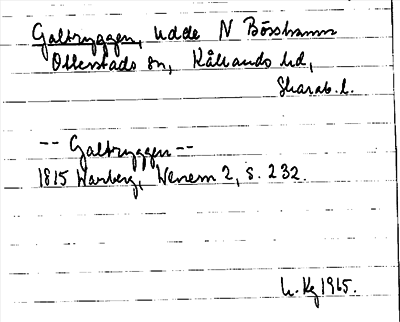 Galtryggen, udde N Börshamn
Otterstads sn, Kållands hd,
Skarab. l.
-- Galtryggen --
1815 Warberg, Wenern 2, s. 232.
h. Kg 1965.